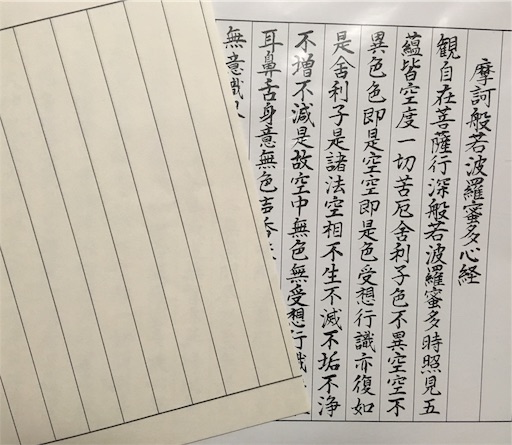 摩訶般若波羅蜜多心経
観自在菩薩行深般若波羅蜜多時照見五
蘊皆空度一切苦厄舍利子色不異空空不
異色色即是空空即是色受想行識亦復如
是舍利子是諸法空相不生不滅不垢不浄
不増不減是故空中無色無受想行識
耳鼻舌身意無色声香
無意識